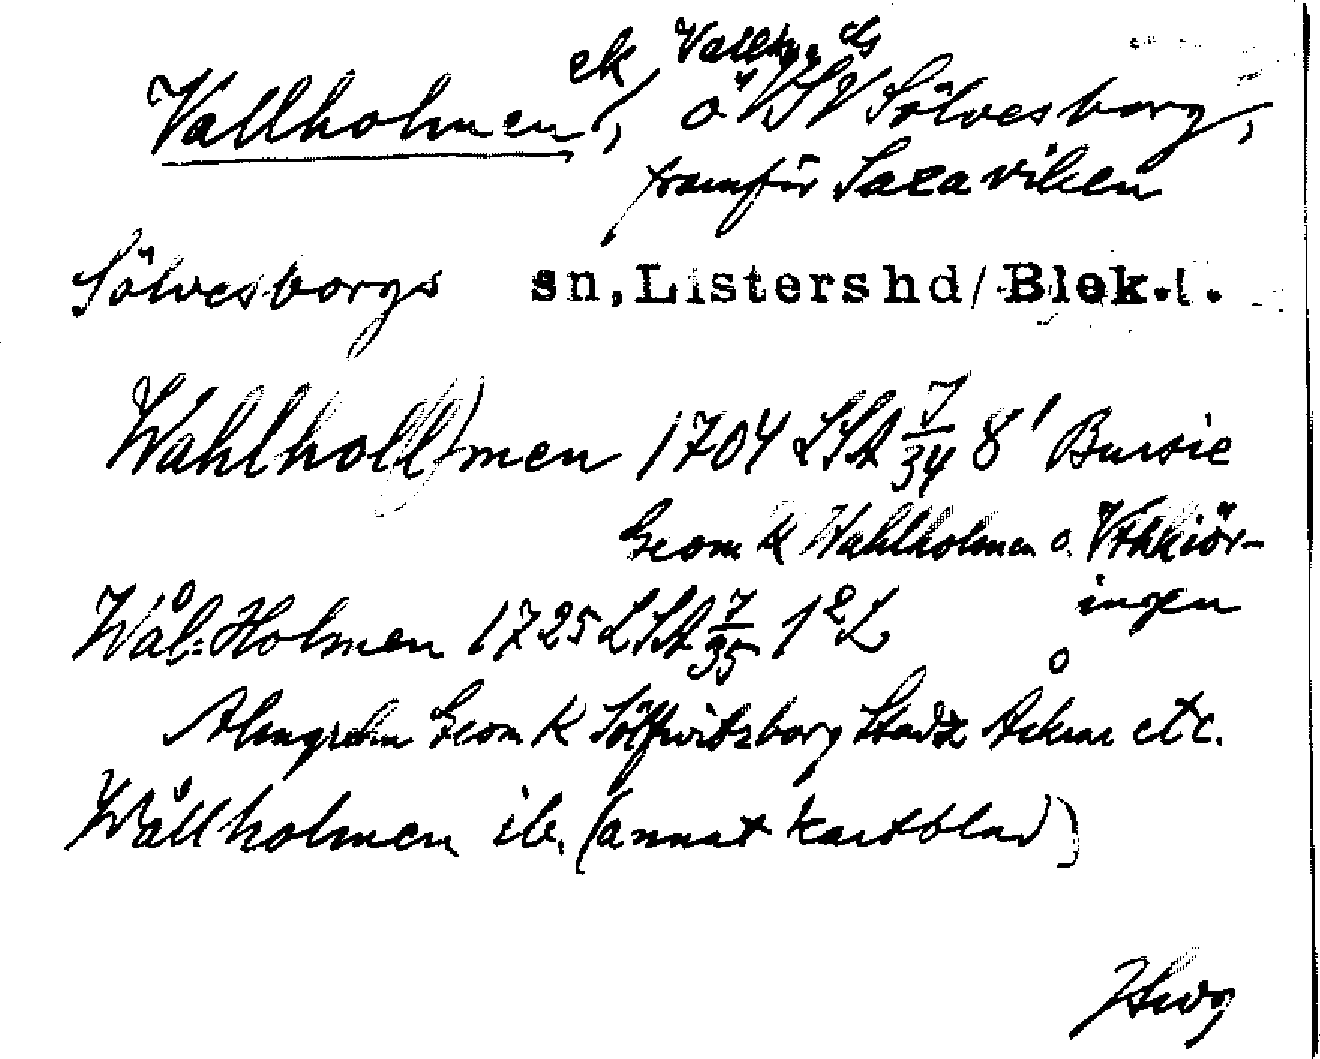 ek
Vallholmen, ö VSV Sölvesborg,
framför Saxaviken
Sölvesborgs sn, Listers hd/Blek.l.
Wahlholl)men 1704 LSA 7/34 8¹ Bursie
Geom K Wahlholmen o. Ythkiör-
ingen
Wål-Holmen 1725 LSA 7/35 1² L
Almgrehn Geom K Sölfwitzborg Stadz Åkrar etc.
Wållholmen ib. (annat kartblad)